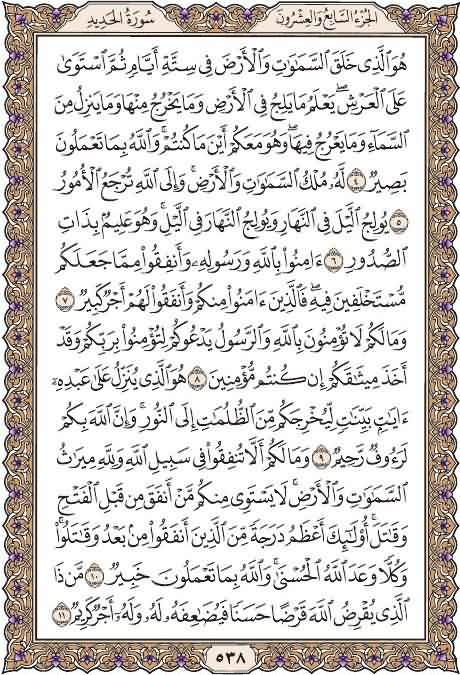 سُورَةُ الحَدِيدِ
الجُزْءُ السَّابِعُ وَالعِشْرُونَ
هُوَ ٱلَّذِي خَلَقَ ٱلسَّمَٰوَٰتِ وَٱلْأَرْضَ فِي سِتَّةِ أَيَّامٖ ثُمَّ ٱسْتَوَىٰ
عَلَى ٱلْعَرْشِۖ يَعْلَمُ مَا يَلِجُ فِي ٱلْأَرْضِ وَمَا يَخْرُجُ مِنْهَا وَمَا يَنزِلُ مِنَ
ٱلسَّمَآءِ وَمَا يَعْرُجُ فِيهَاۖ وَهُوَ مَعَكُمْ أَيْنَ مَا كُنتُمْۚ وَٱللَّهُ بِمَا تَعْمَلُونَ
بَصِيرٞ ٤ لَّهُۥ مُلْكُ ٱلسَّمَٰوَٰتِ وَٱلْأَرْضِۚ وَإِلَى ٱللَّهِ تُرْجَعُ ٱلْأُمُورُ
٥ يُولِجُ ٱلَّيْلَ فِي ٱلنَّهَارِ وَيُولِجُ ٱلنَّهَارَ فِي ٱلَّيْلِۚ وَهُوَ عَلِيمُۢ بِذَاتِ
ٱلصُّدُورِ ٦ ءَامِنُواْ بِٱللَّهِ وَرَسُولِهِۦ وَأَنفِقُواْ مِمَّا جَعَلَكُم
مُّسْتَخْلَفِينَ فِيهِۖ فَٱلَّذِينَ ءَامَنُواْ مِنكُمْ وَأَنفَقُواْ لَهُمْ أَجْرٞ كَبِيرٞ ٧
وَمَا لَكُمْ لَا تُؤْمِنُونَ بِٱللَّهِ وَٱلرَّسُولُ يَدْعُوكُمْ لِتُؤْمِنُواْ بِرَبِّكُمْ وَقَدْ
أَخَذَ مِيثَٰقَكُمْ إِن كُنتُم مُّؤْمِنِينَ ٨ هُوَ ٱلَّذِي يُنَزِّلُ عَلَىٰ عَبْدِهِۦٓ
ءَايَٰتِۭ بَيِّنَٰتٖ لِّيُخْرِجَكُم مِّنَ ٱلظُّلُمَٰتِ إِلَى ٱلنُّورِۚ وَإِنَّ ٱللَّهَ بِكُمْ
لَرَءُوفٞ رَّحِيمٞ ٩ وَمَا لَكُمْ أَلَّا تُنفِقُواْ فِي سَبِيلِ ٱللَّهِ وَلِلَّهِ مِيرَٰثُ
ٱلسَّمَٰوَٰتِ وَٱلْأَرْضِۚ لَا يَسْتَوِي مِنكُم مَّنْ أَنفَقَ مِن قَبْلِ ٱلْفَتْحِ
وَقَٰتَلَۚ أُوْلَٰٓئِكَ أَعْظَمُ دَرَجَةٗ مِّنَ ٱلَّذِينَ أَنفَقُواْ مِنۢ بَعْدُ وَقَٰتَلُواْۚ
وَكُلّٗا وَعَدَ ٱللَّهُ ٱلْحُسْنَىٰۚ وَٱللَّهُ بِمَا تَعْمَلُونَ خَبِيرٞ ١٠ مَّن ذَا
ٱلَّذِي يُقْرِضُ ٱللَّهَ قَرْضًا حَسَنٗا فَيُضَٰعِفَهُۥ لَهُۥ وَلَهُۥٓ أَجْرٞ كَرِيمٞ ١١
٥٣٨